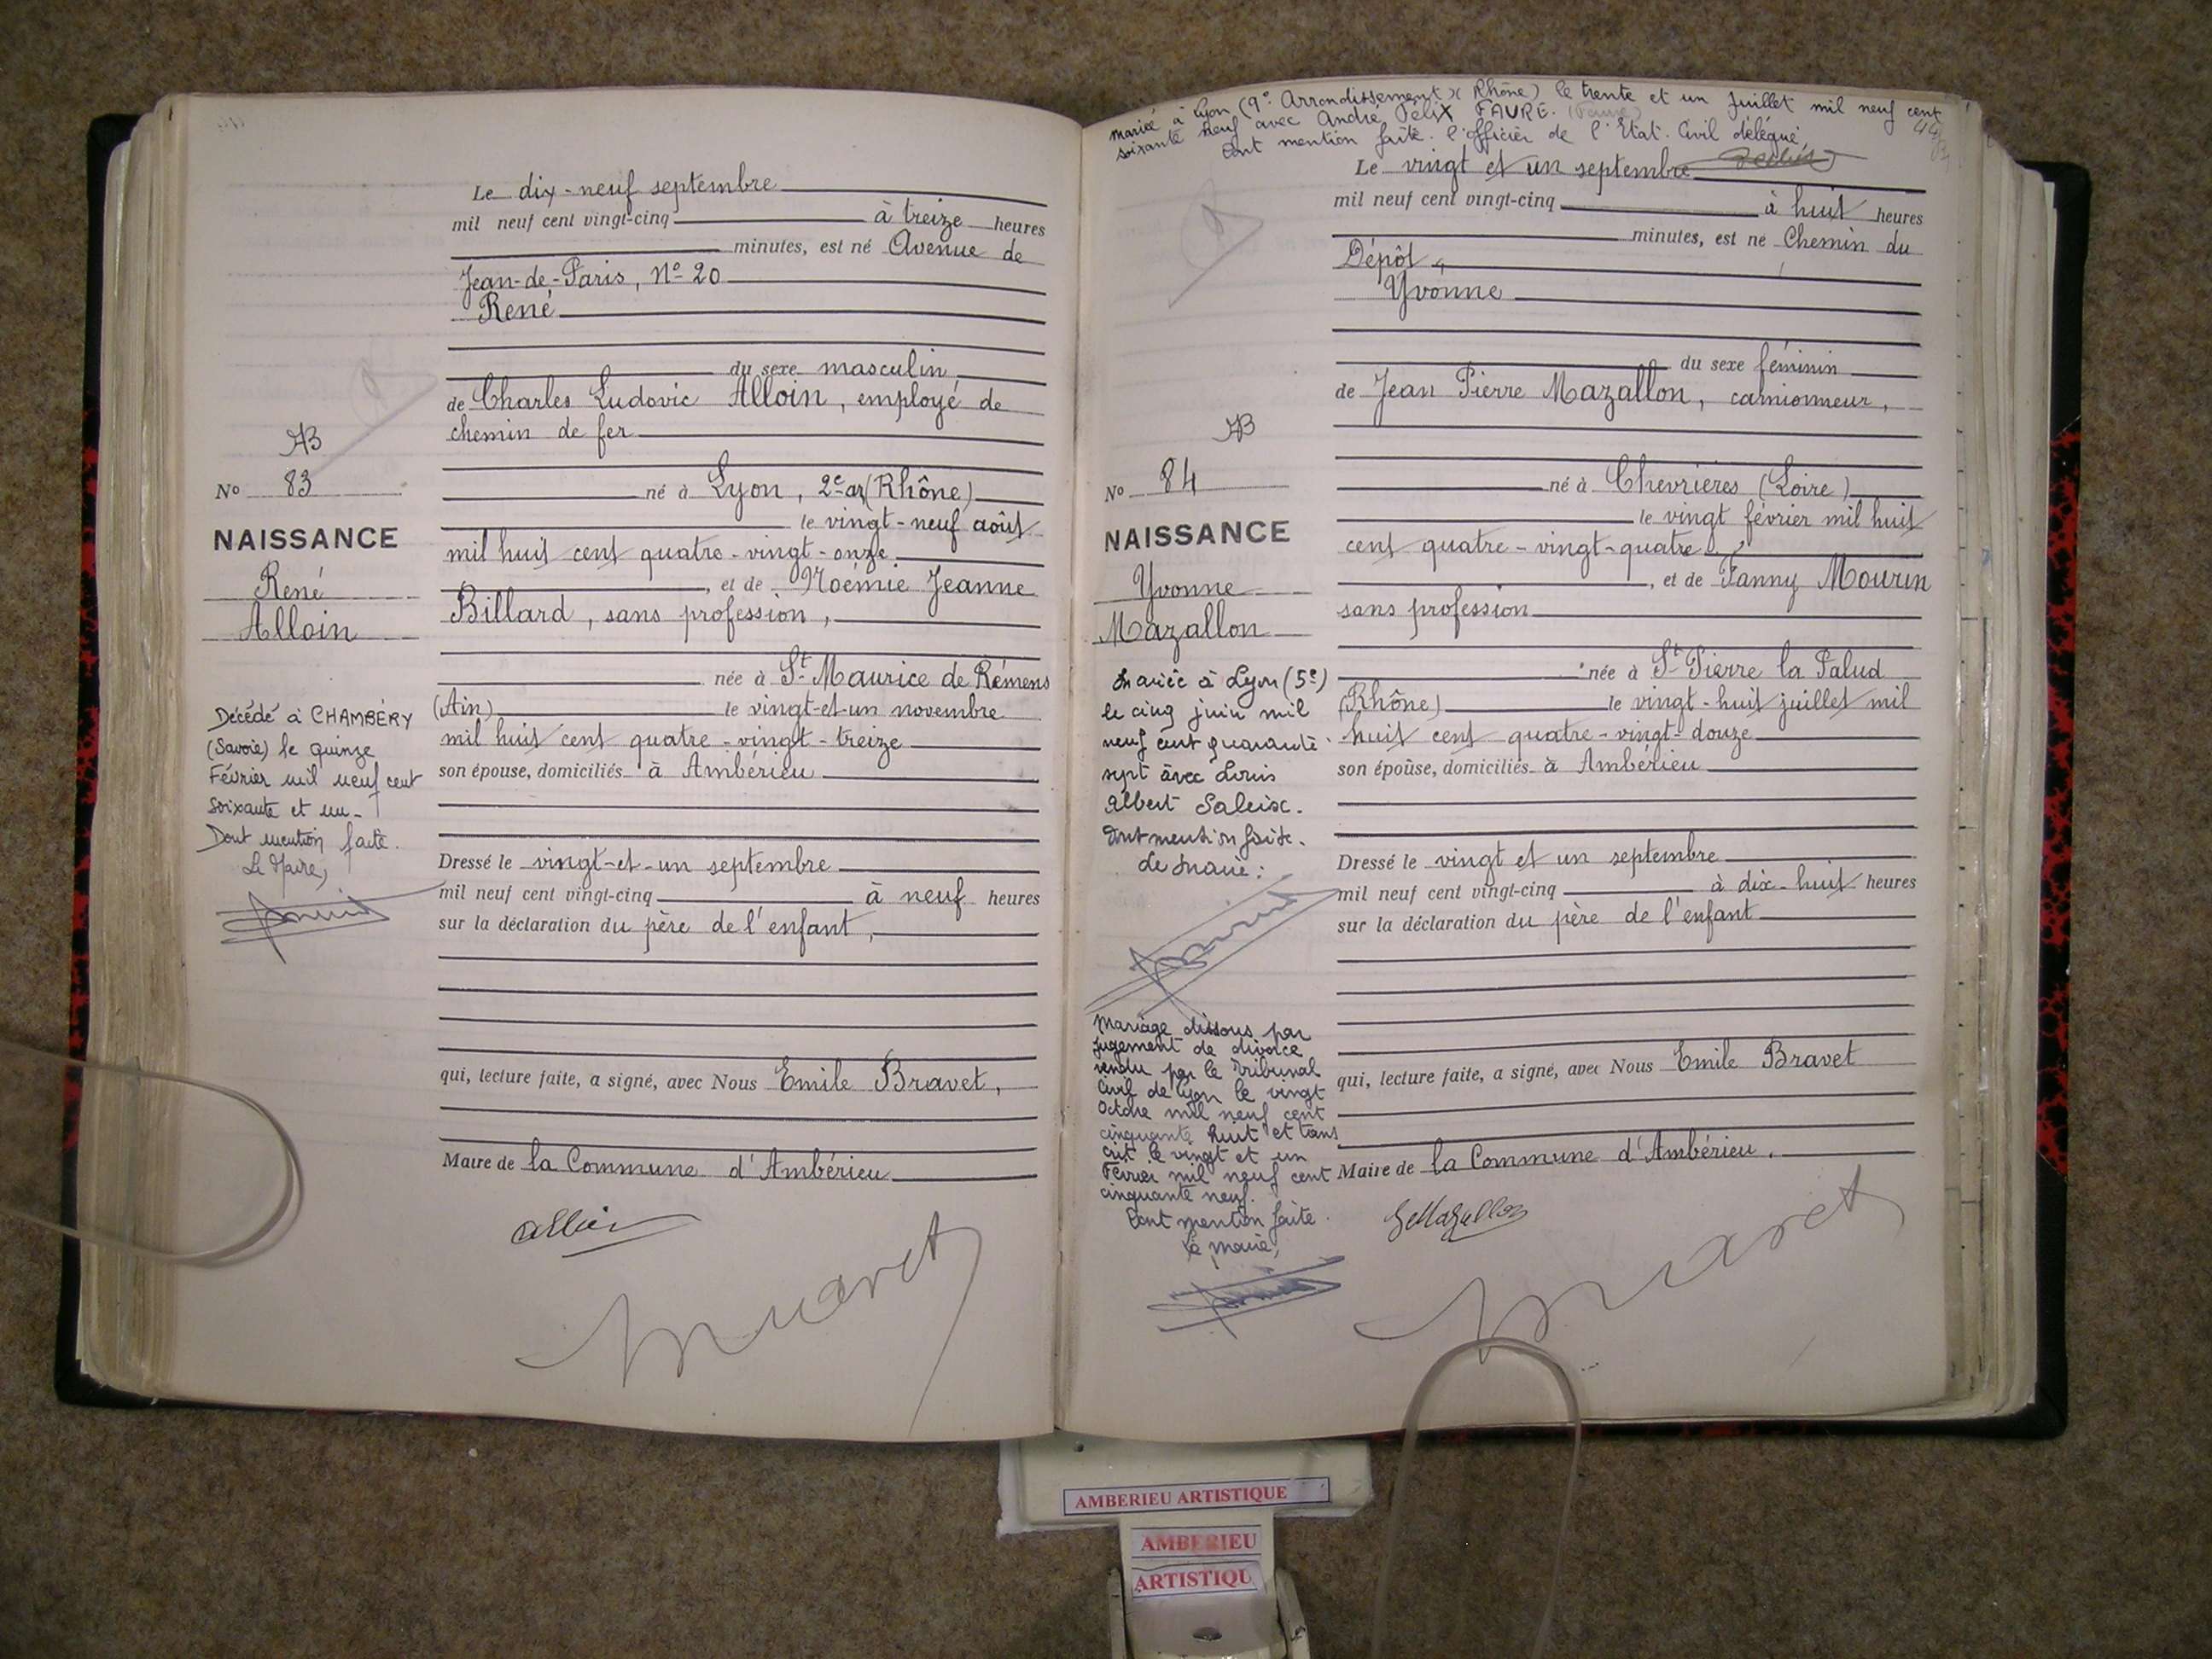 Le dix-neuf septembre
mil neuf cent vingt-cinq à treize heures
minutes, est né Avenue de
Jean-de-Paris, N° 20
René
du sexe masculin
de Charles Ludovic Alloin, employé de
chemin de fer
né à Lyon, 2e ar (Rhône)
le vingt-neuf août
mil huit cent quatre-vingt-onze
, et de Noémie Jeanne
Billard, sans profession,
née à St Maurice de Rémens
(Ain) le vingt-et-un novembre
mil huit cent quatre-vingt-treize
son épouse, domiciliés à Ambérieu
Dressé le vingt-et-un septembre
mil neuf cent vingt-cinq à neuf heures
sur la déclaration du père de l'enfant,
qui, lecture faite, a signé, avec Nous Emile Bravet,
Maire de la Commune d'Ambérieu
AB
No 83
NAISSANCE
René
Alloin
Décédé à CHAMBÉRY
(Savoie) le quinze
Février mil neuf cent
soixante et un-
Dont mention faite.
Le Maire,
Mariée à Lyon (9e Arrondissement) (Rhône) le trente et un Juillet mil neuf cent
soixante neuf avec André Félix FAURE.
Dont mention faite. l'officier de l'Etat. Civil délégué,
Le vingt et un septembre
mil neuf cent vingt-cinq à huit heures
minutes, est né Chemin du
Dépôt
Yvonne
du sexe féminin
de Jean Pierre Mazallon, camionneur,
né à Chevrières (Loire)
le vingt février mil huit
cent quatre-vingt-quatre
, et de Fanny Mourin
sans profession
née à St Pierre la Palud
(Rhône) le vingt-huit juillet mil
huit cent quatre-vingt-douze
son épouse, domiciliés à Ambérieu
Dressé le vingt et un septembre
mil neuf cent vingt-cinq à dix-huit heures
sur la déclaration du père de l'enfant
qui, lecture faite, a signé, avec Nous Emile Bravet
Maire de la Commune d'Ambérieu.
AB
No 84
NAISSANCE
Yvonne
Mazallon
Mariée à Lyon (5e)
le cinq juin mil
neuf cent quarante
sept avec Louis
Albert
Dont mention faite.
Le Maire:
Mariage dissous par
jugement de divorce
rendu par le Tribunal
Civil de Lyon le vingt
Octobre mil neuf cent
cinquante huit et trans
crit le vingt et un
Février mil neuf cent
cinquante neuf.
Dont mention faite.
Le Maire,
AMBERIEU ARTISTIQUE
AMBERIEU
ARTISTIQU